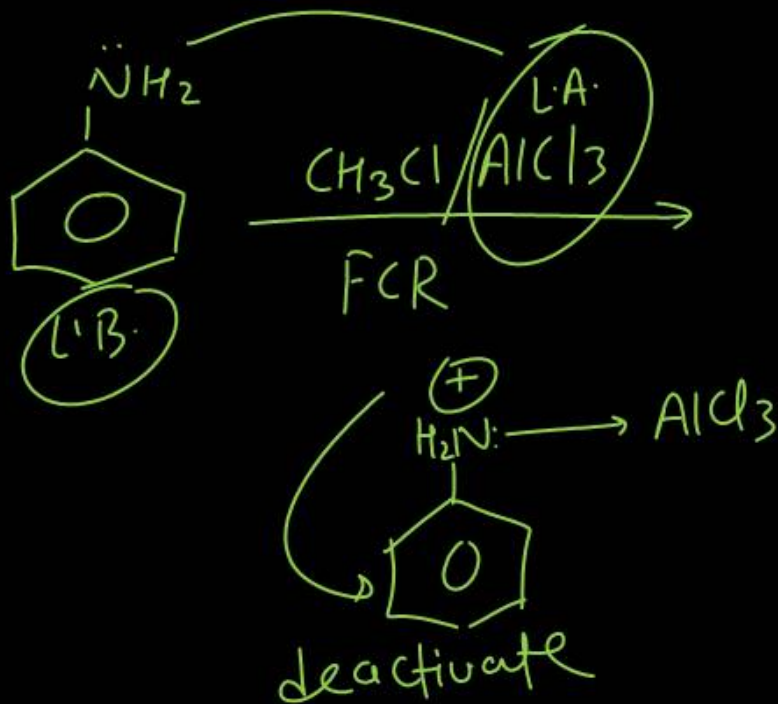 N̈H2
L.A.
CH3Cl/AlCl3
FCR
L.B.
+
H2N: → AlCl3
deactivate